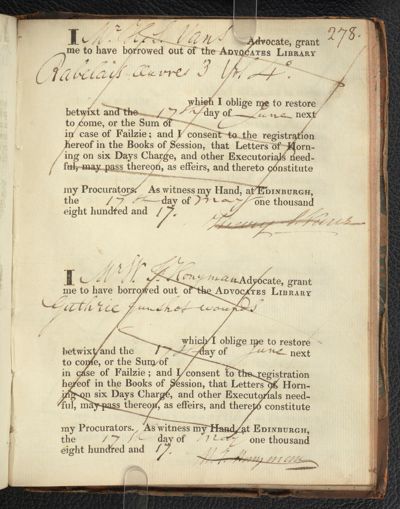 278.
I Mr Advocate, grant
me to have borrowed out of the ADVOCATES LIBRARY
Rabelais œuvres 3 Vol 4o.
which I oblige me to restore
betwixt and the 17th day of June next
to come, or the Sum of
in case of Failzie; and I consent to the registration
hereof in the Books of Session, that Letters of Horn-
ing on six Days Charge, and other Executorials need-
ful, may pass thereon, as effeirs, and thereto constitute
my Procurators. As witness my Hand, at EDINBURGH,
the 17th day of May one thousand
eight hundred and 17.
I Mr W. F. Honyman Advocate, grant
me to have borrowed out of the ADVOCATES LIBRARY
Guthrie gunshot wounds
which I oblige me to restore
betwixt and the 17th day of June next
to come, or the Sum of
in case of Failzie; and I consent to the registration
hereof in the Books of Session, that Letters of Horn-
ing on six Days Charge, and other Executorials need-
ful, may pass thereon, as effeirs, and thereto constitute
my Procurators. As witness my Hand, at EDINBURGH,
the 17th day of May one thousand
eight hundred and 17.
Honyman